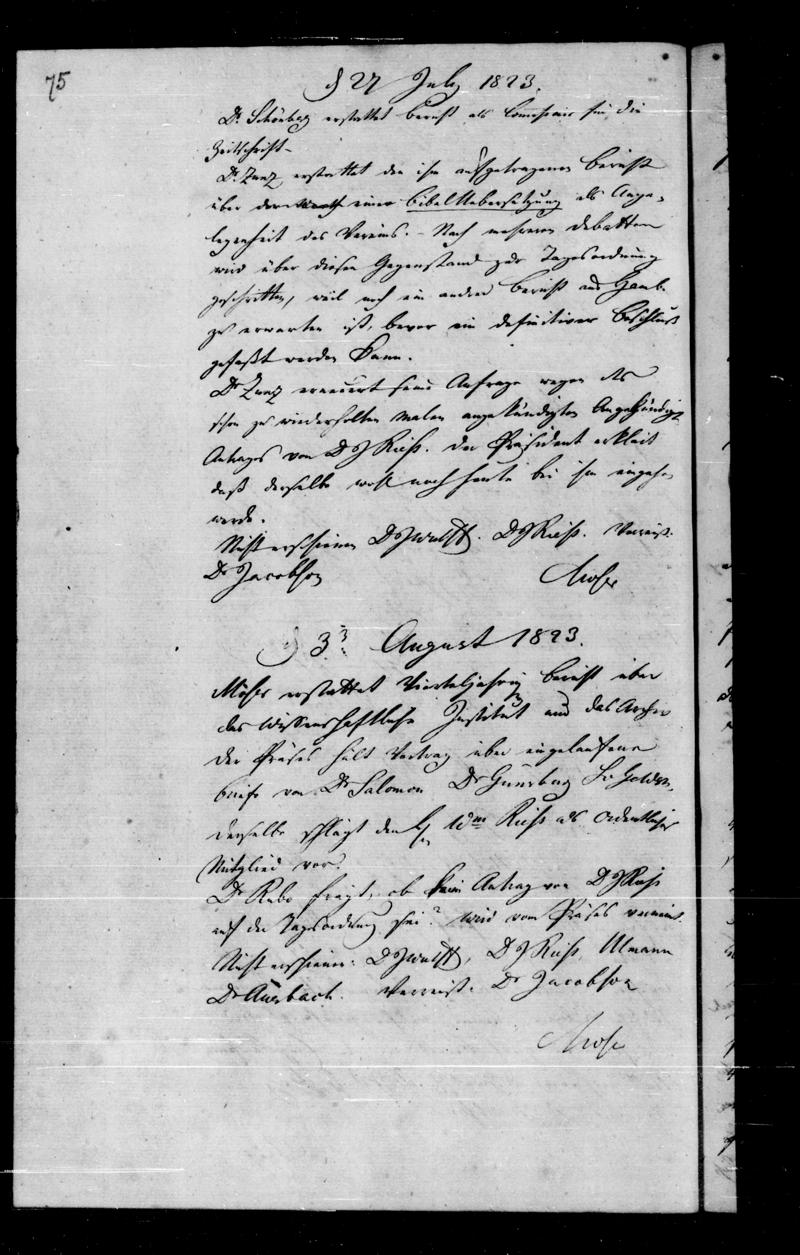 75
d 27 July 1823.
Dr. Schönberg erstattet Bericht als Comissair für die
Zeitschrift.
Dr. Zunz erstattet den ihm aufgetragenen Bericht
über den einer Bibel Uebersetzung als Ange-
legenheit des Vereins. Nach mehreren Debatten
wird über diesen Gegenstand zur Tagesordnung
geschritten, weil noch ein andrer Bericht aus Hamb.
zu erwarten ist, bevor ein definitiver Beschluß
gefaßt werden kann.
Dr Zunz erneuert seine Anfrage wegen des
schon zu wiederholten Malen angekündigten
Antrages von Dr J Rieß. Der Präsident erklärt
daß derselbe wohl noch heute bei ihm eingehen
werde.
Nicht erschienen Dr J Wulff. Dr J Rieß. Verreist.
Dr Jacobson
Moser
d 3 August 1823.
Moser erstattet Vierteljährig Bericht über
das Wissenschaftliche Institut und das Archiv
Der Präses hält Vortrag über eingelaufene
Briefe von Dr Salomon Dr Günsburg
Derselbe schlägt den H Rieß als ordentliches
Mitglied vor.
Dr Rubo fragt, ob kein Antrag von Dr J Rieß
auf der Tagesordnung sei? wird vom Präses verneint.
Nicht erschienen: Dr J Wulff, Dr J Rieß, Ulmann
Dr Auerbach. Verreist. Dr Jacobson
Moser